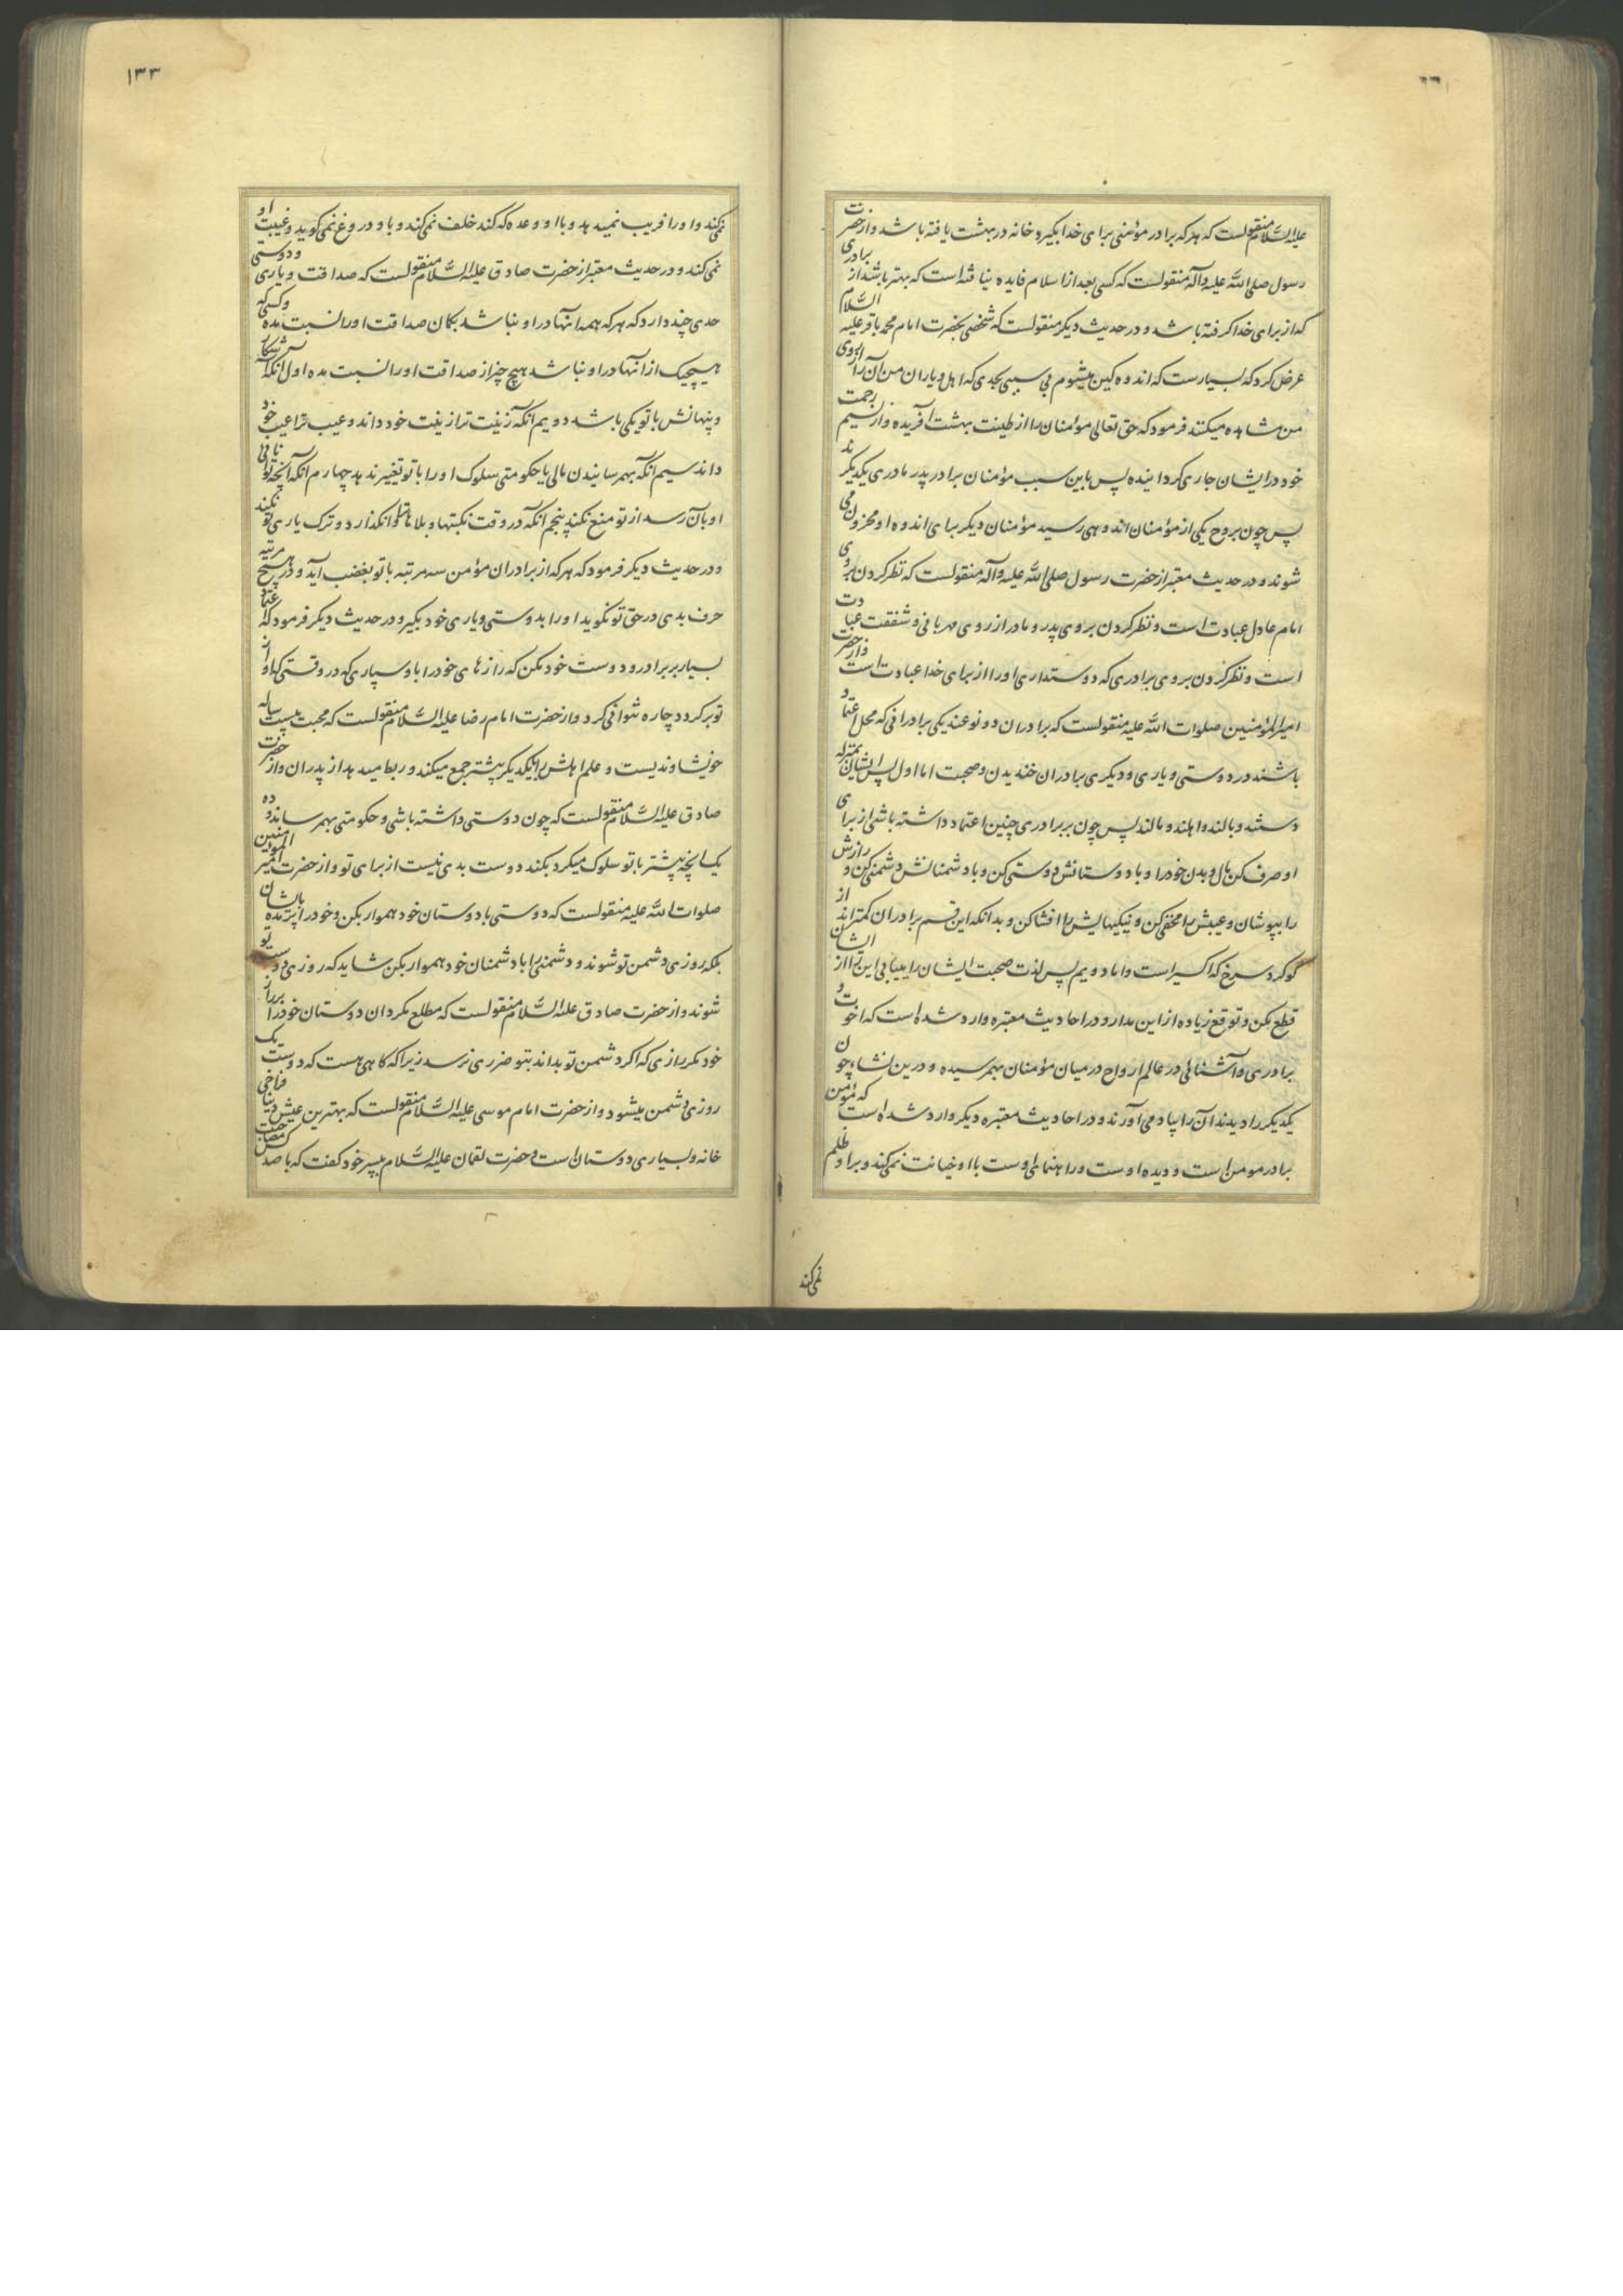 علیه السّلام منقولست که هرکه برادر مؤمنی برای خدا بگیرد خانه در بهشت یافته باشد و از حضرت
رسول صلی الله علیه وآله منقولست که کسی بعد از اسلام فایده نیافته است که بهتر باشد از برادری
که از برای خدا گرفته باشد و در حدیث دیگر منقولست که شخصی بحضرت امام محمد باقر علیه السّلام
عرض کرد که بسیارست که اندوهکین میشوم بی سببی بحدی که اهل و یاران من آن را از روی
من مشاهده میکنند فرمود که حق تعالی مؤمنان را از طینت بهشت آفریده و از نسیم رحمت
خود در ایشان جاری کردانیده پس باین سبب مؤمنان برادر پدر مادری یکدیکرند
پس چون بروح یکی از مؤمنان اندوهی رسید مؤمنان دیکر برای اندوه او محزون می
شوند و در حدیث معتبر از حضرت رسول صلی الله علیه وآله منقولست که نظر کردن بروی
امام عادل عبادت است و نظر کردن بروی پدر و مادر از روی مهربانی و شفقت عبادت
است و نظر کردن بروی برادری که دوستداری او را از برای خدا عبادت است و از حضرت
امیرالمؤمنین صلوات الله علیه منقولست که برادران دو نوعند یکی برادرانی که محل اعتماد
باشند در دوستی و یاری و دیکری برادران خندیدن و صحبت اما اول پس ایشان بمنزله
دستند و بالند و اهلند و مالند پس چون بر برادری چنین اعتماد داشته باشی از برای
او صرف کن مال و بدن خود را و با دوستانش دوستی کن و با دشمنانش دشمنی کن و رازش
را بپوشان و عیبش را مخفی کن و نیکیهایش را افشا کن و بدانکه این قسم برادران کمتراند از
کوکرد سرخ که اکسیر است و اما دویم پس لذت صحبت ایشان را مییابی این را از ایشان
قطع مکن و توقع زیاده از این مدار و در احادیث معتبره وارد شده است که اخوت و
برادری و آشنائی در عالم ارواح در میان مؤمنان بهمرسیده و درین نشاءه چون
یکدیکر را دیدند آن را بیاد می آورند و در احادیث معتبره دیکر وارد شده است که مؤمن
برادر مومن است و دیده اوست و راهنمای اوست با او خیانت نمی کند و بر او ظلم
نمی کند
۱۳۳
نمی کند و او را فریب نمیدهد و با او وعده که کند خلف نمی کند و باو دروغ نمی کوید و غیبت او
نمی کند و در حدیث معتبر از حضرت صادق علیه السّلام منقولست که صداقت و یاری و دوستی
حدی چند دارد که هر که همه آنها در او نباشد بکمان صداقت او را نسبت مده و کسی که
هیچیک از آنها در او نباشد هیچ چیز از صداقت او را نسبت مده اول آنکه آشکار
و پنهانش با تو یکی باشد دویم آنکه زینت ترا زینت خود داند و عیب ترا عیب خود
داند سیم آنکه بهمرسانیدن مالی یا حکومتی سلوک او را با تو تغییر ندهد چهارم آنکه آنچه توانائی
او بآن رسد از تو منع نکند پنجم آنکه در وقت نکبتها و بلاها ترا وانکذارد و ترک یاری تو نکند
و در حدیث دیکر فرمود که هر که از برادران مؤمن سه مرتبه با تو بغضب آید و در هیچ مرتبه
حرف بدی در حق تو نکوید او را بدوستی و یاری خود بکیر و در حدیث دیکر فرمود که اعتماد
بسیار بر برادر و دوست خود مکن که رازهای خود را باو سپاری که در وقتی که او از
تو برکردد چاره نتوانی کرد و از حضرت امام رضا علیه السّلام منقولست که محبت بیست ساله
خویشاوندیست و علم اهلش را بیکدیکر بیشتر جمع میکند و ربط میدهد از پدران و از حضرت
صادق علیه السّلام منقولست که چون دوستی داشته باشی و حکومتی بهمرساند و ده
یک آنچه پیشتر با تو سلوک میکرد بکند دوست بدی نیست از برای تو و از حضرت امیر المومنین
صلوات الله علیه منقولست که دوستی با دوستان خود هموار بکن و خود را بایشان مده
بلکه روزی دشمن تو شوند و دشمنی را با دشمنان خود هموار بکن شاید که روزی دوست تو
شوند و از حضرت صادق علیه السّلام منقولست که مطلع مکردان دوستان خود را بر راز
خود مکر رازی که اکر دشمن تو بداند بتو ضرری نرسد زیرا که کاهی هست که دوست یک
روزی دشمن میشود و از حضرت امام موسی علیه السّلام منقولست که بهترین عیش دنیا فراخی
خانه و بسیاری دوستان است و حضرت لقمان علیه السّلام بپسر خود کفت که با صد کس